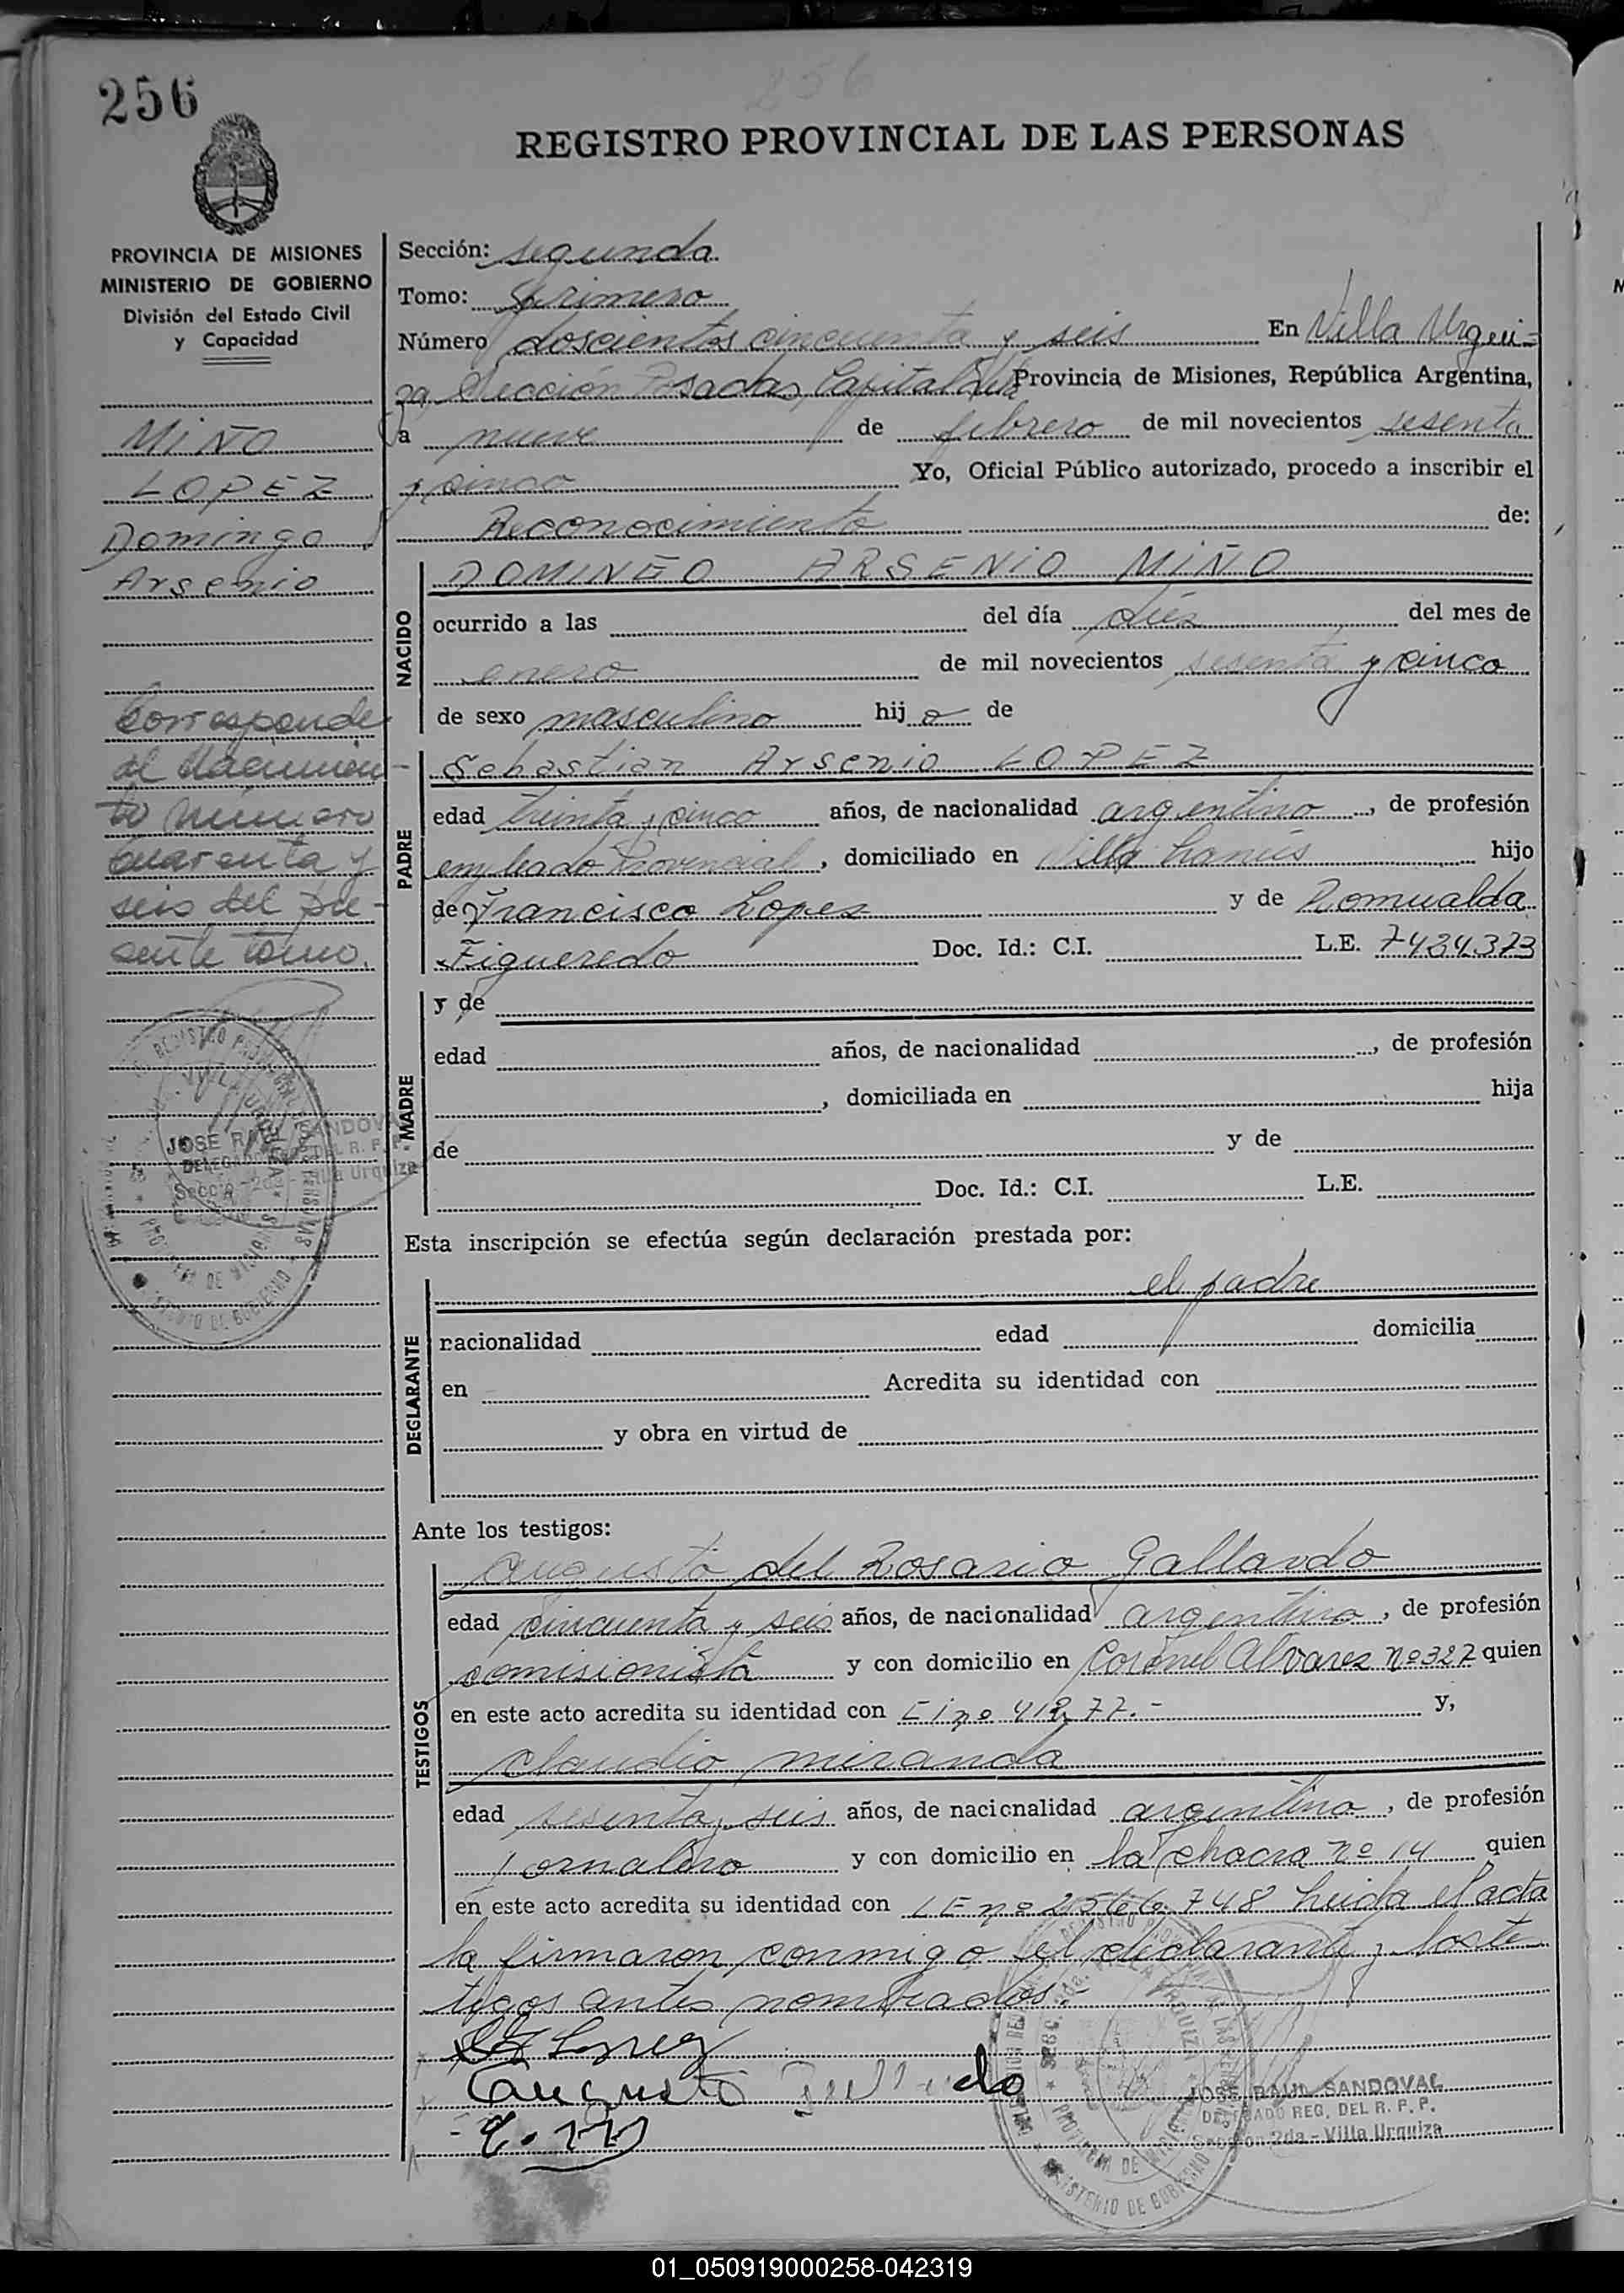 256
256
REGISTRO PROVINCIAL DE LAS PERSONAS
PROVINCIA DE MISIONES
MINISTERIO DE GOBIERNO
División del Estado Civil
y Capacidad
MIÑO
LOPEZ
Domingo
Arsenio
Corresponde
al Nacimien-
to número
cuarenta y
seis del pre-
sente tomo.
JOSE RAUL SANDOVAL
DELEGADO REG. DEL R. P. P.
Sección 2da - Villa Urquiza
Sección: segunda
Tomo: primero
Número doscientos cincuenta y seis En Villa Urqui-
za Sección Posadas, Capital de la Provincia de Misiones, República Argentina,
a nueve de febrero de mil novecientos sesenta
y cinco Yo, Oficial Público autorizado, procedo a inscribir el
Reconocimiento de:
NACIDO
DOMINGO ARSENIO MIÑO
ocurrido a las del día diez del mes de
enero de mil novecientos sesenta y cinco
de sexo masculino hijo de
PADRE
Sebastian Arsenio LOPEZ
edad treinta y cinco años, de nacionalidad argentino, de profesión
empleado Provincial, domiciliado en Villa Lanús hijo
de Francisco Lopez y de Romualda
Figueredo Doc. Id.: C.I. L.E. 7434.373
MADRE
y de
edad años, de nacionalidad , de profesión
, domiciliada en hija
de y de
Doc. Id.: C.I. L.E.
Esta inscripción se efectúa según declaración prestada por:
DECLARANTE
el padre
nacionalidad edad domicilia
en Acredita su identidad con
y obra en virtud de
Ante los testigos:
TESTIGOS
Augusto del Rosario Gallardo
edad cincuenta y seis años, de nacionalidad argentino, de profesión
comisionista y con domicilio en Coronel Alvarez nº 327 quien
en este acto acredita su identidad con CI nº 412.77.- y,
Claudio miranda
edad sesenta y seis años, de nacionalidad argentino, de profesión
Jornalero y con domicilio en la chacra nº 14 quien
en este acto acredita su identidad con LE nº 2566.748 Leida el acta
la firmaron conmigo el declarante y los tes
tigos antes nombrados.-
Lopez
Augusto Gallardo
JOSE RAUL SANDOVAL
DELEGADO REG. DEL R. P. P.
Sección 2da - Villa Urquiza
01_050919000258-042319